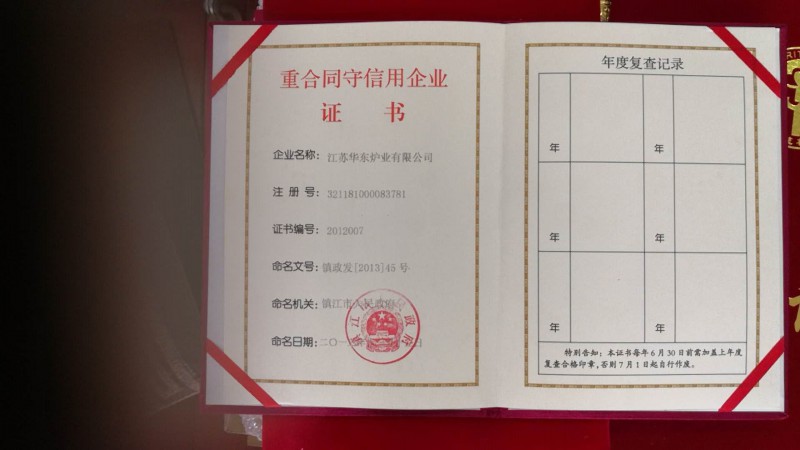 重合同守信用企业
证 书
企业名称: 江苏华东炉业有限公司
注 册 号: 321181000083781
证书编号: 2012007
命名文号: 镇政发[2013]45 号
命名机关: 镇江市人民政府
命名日期: 二〇一 日
年度复查记录
年 年
年 年
年 年
特别告知:本证书每年6月30日前需加盖上年度
复查合格印章,否则7月1日起自行作废。